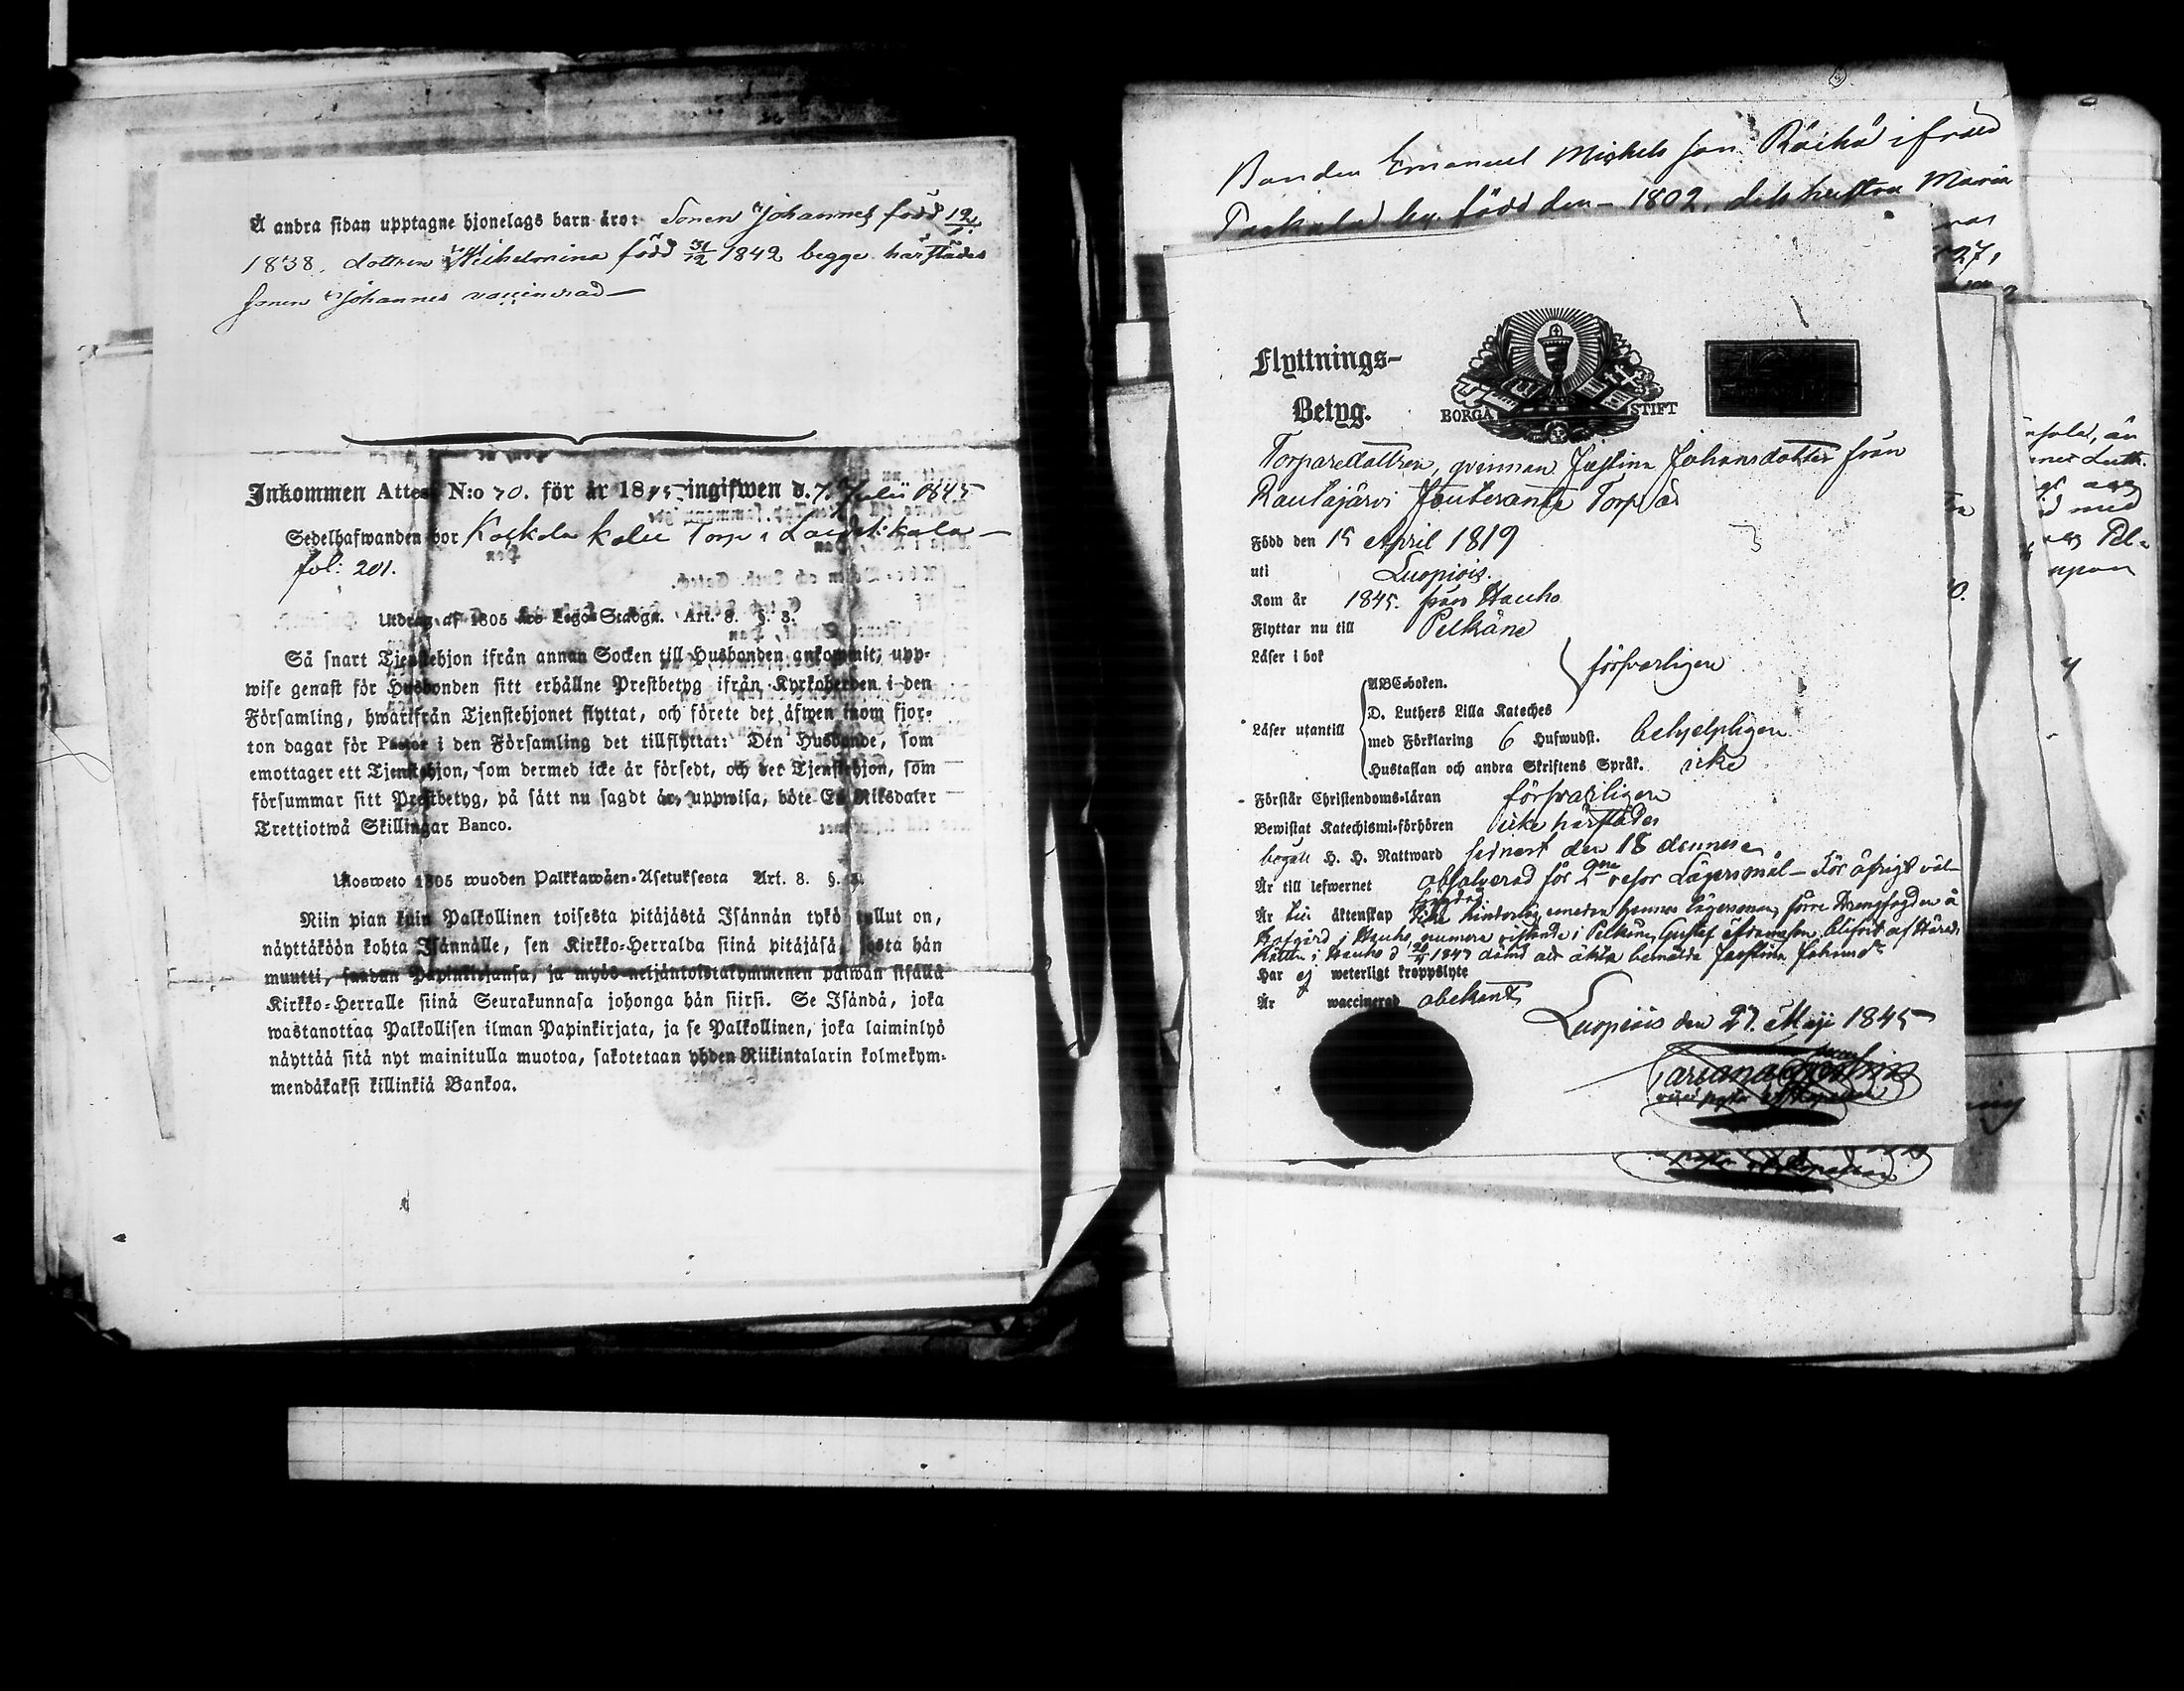 Å andra sidan upptagne hjonelags barn äro: Sonen Johannes född 12/
1838, dottren Wilhelmina född 31/12 1842 begge härstädes
Sonen Johannes vaccinerad
Inkommen Attest N:o 70. för år 1845 ingifwen d. 7. Julii 1845
Sedelhafwanden bor Torp i
fol: 201.
Utdrag af 1805 års Lego-Stadga. Art. 8. §. 3.
Så snart Tjenstehjon ifrån annan Socken till Husbonden ankommit, upp-
wise genast för Husbonden sitt erhållne Prestbetyg ifrån Kyrkoherden i den
Församling, hwarifrån Tjenstehjonet flyttat, och förete det äfwen inom fjor-
ton dagar för Pastor i den Församling det tillflyttat: Den Husbonde, som
emottager ett Tjenstehjon, som dermed icke är försedt, och det Tjenstehjon, som
försummar sitt Prestbetyg, på sätt nu sagdt är, uppwisa, böte En Riksdaler
Trettiotwå Skillingar Banco.
Ulosweto 1805 wuoden Palkkawäen-Asetuksesta Art. 8. §. 3.
Niin pian kuin Palkollinen toisesta pitäjästä Isännän tykö tullut on,
näyttäköön kohta Isännälle, sen Kirkko-Herralda siinä pitäjäsä, josta hän
muutti, saadun Papinkirjansa, ja myös neljäntoistakymmenen päiwän sisällä
Kirkko-Herralle siinä Seurakunnasa johonga hän siirsi. Se Isändä, joka
wastanottaa Palkollisen ilman Papinkirjata, ja se Palkollinen, joka laiminlyö
näyttää sitä nyt mainitulla muotoa, sakotetaan yhden Riikintalarin kolmekym-
mendäkaksi killinkiä Bankoa.
Bonden Emanuel Michels son Räihä ifrån
by, född den - 1802, dess hustru Maria
Flyttnings-
Betyg.
BORGÅ STIFT
Torparedottren, qvinnan Justina Johansdotter från
Rautajärvi Torp är
Född den 15 April 1819
uti Luopiois.
Kom år 1845. från Hauho
Flyttar nu till Pelkäne
Läser i bok försvarligen
ABC-boken.
D. Luthers Lilla Kateches
Läser utantill med Förklaring 6 Hufwudst. behjelpligen
Hustaflan och andra Skriftens Språk. icke
Förstår Christendoms-läran försvarligen
Bewistat Katechismi-förhören icke härstädes
begått H. H. Nattward sednast den 18 dennes
Är till lefwernet absolverad för 2ne resor Lägersmål - För öfrigt väl-
frejdad
Är till äktenskap icke hinderlig emedan hennes lägersman, förre Drengfogden å
Hofgård i Hauho, numera vistande i Pelkäne, Gustaf blifvit af Härads
Rätten i Hauho d 1844 dömd att äkta bemälda Justina Johansdr
Har ej weterligt kroppslyte
Är waccinerad obekant
Luopiois den 27. Maji 1845